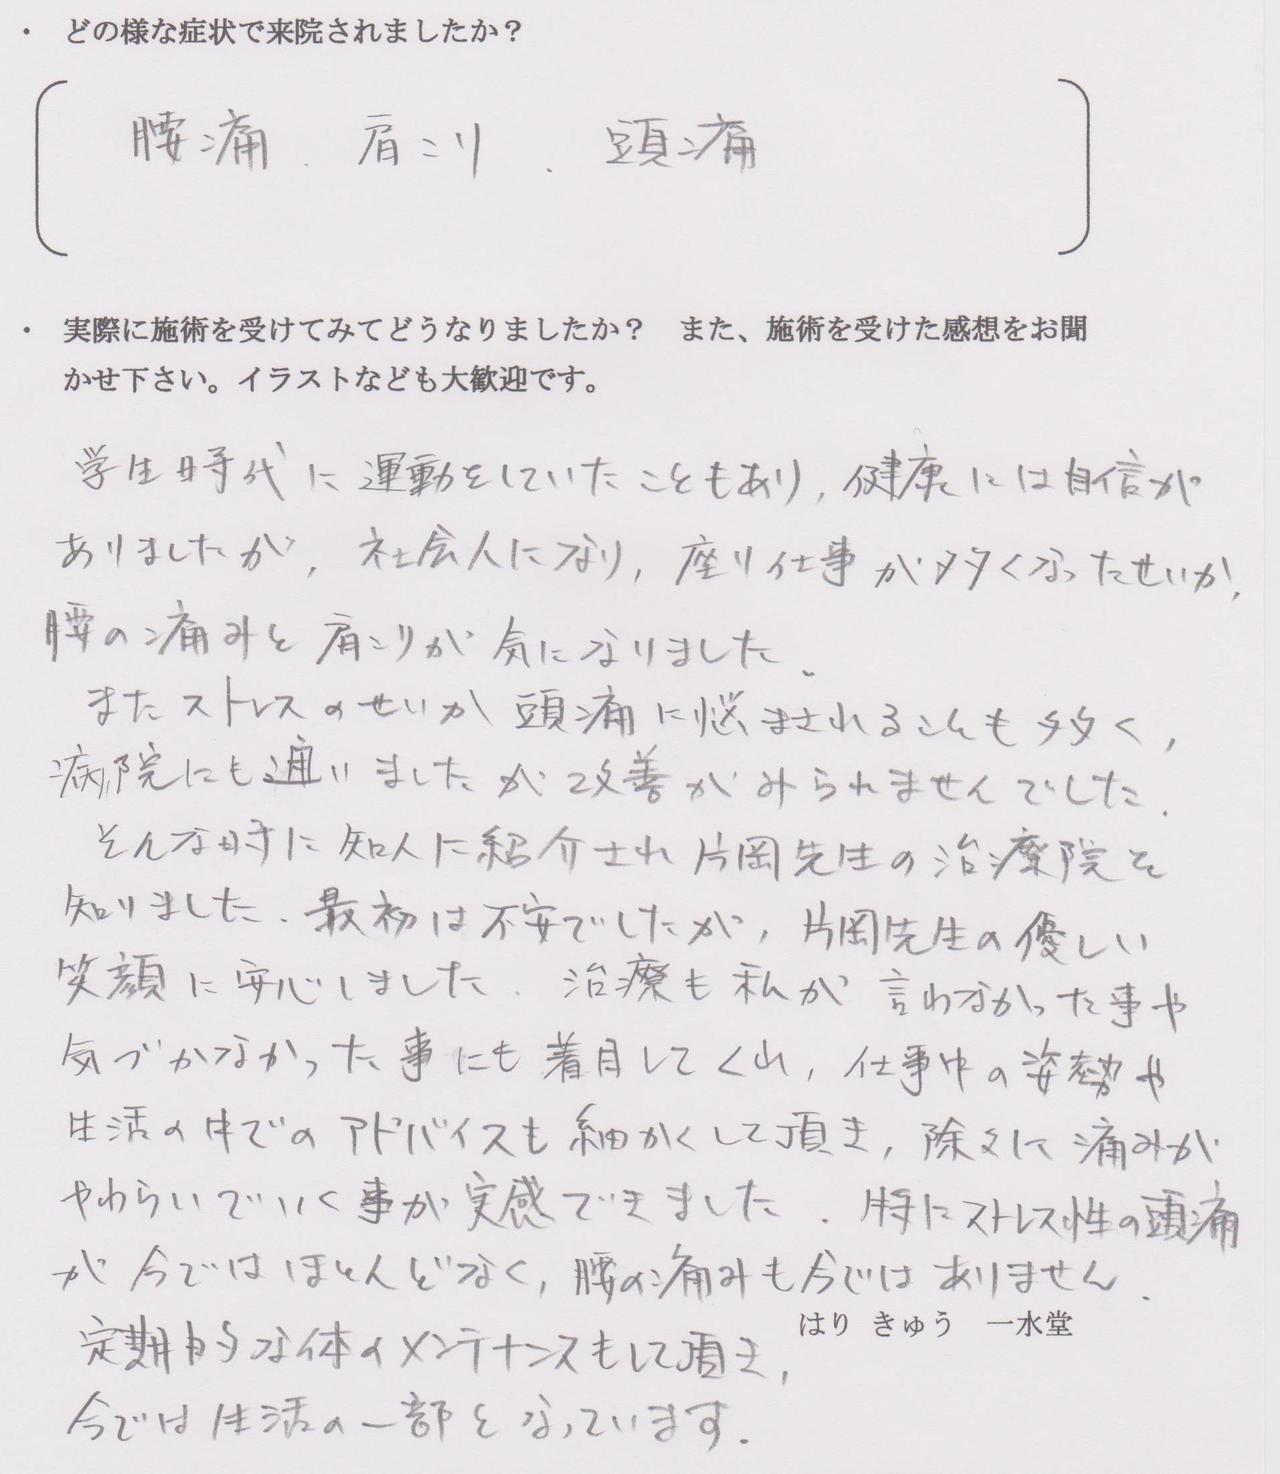 ・ どの様な症状で来院されましたか？
腰痛．肩こり．頭痛
・ 実際に施術を受けてみてどうなりましたか？ また、施術を受けた感想をお聞
かせ下さい。イラストなども大歓迎です。
学生時代に運動をしていたこともあり，健康には自信が
ありましたが，社会人になり，座り仕事が多くなったせいか，
腰の痛みと肩こりが気になりました．
またストレスのせいか頭痛に悩まされることも多く，
病院にも通いましたが改善がみられませんでした．
そんな時に知人に紹介され片岡先生の治療院を
知りました．最初は不安でしたが，片岡先生の優しい
笑顔に安心しました．治療も私が言わなかった事や
気づかなかった事にも着目してくれ，仕事中の姿勢や
生活の中でのアドバイスも細かくして頂き，除々に痛みが
やわらいでいく事が実感できました．特にストレス性の頭痛
が今ではほとんどなく，腰の痛みも今ではありません．
はり きゅう 一水堂
定期的な体のメンテナンスもして頂き，
今では生活の一部となっています．